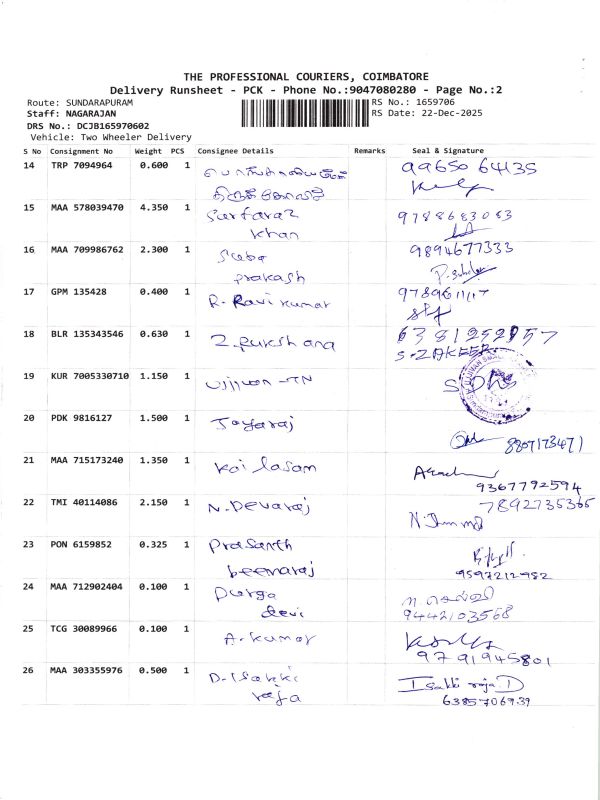 THE PROFESSIONAL COURIERS, COIMBATORE
Delivery Runsheet - PCK - Phone No.:9047080280 - Page No.:2
Route: SUNDARAPURAM RS No.: 1659706
Staff: NAGARAJAN RS Date: 22-Dec-2025
DRS No.: DCJB165970602
Vehicle: Two Wheeler Delivery
S No Consignment No Weight PCS Consignee Details Remarks Seal & Signature
14 TRP 7094964 0.600 1 99650 64135
15 MAA 578039470 4.350 1 Sarfaraz 9788683083
khan
16 MAA 709986762 2.300 1 Suba 9894677333
prakash
17 GPM 135428 0.400 1 R. Ravi kumar
18 BLR 135343546 0.630 1 Z. Rukshana
S-ZAKEER
19 KUR 7005330710 1.150 1 Ujjivan -TN
20 PDK 9816127 1.500 1 Jayaraj
8807173471
21 MAA 715173240 1.350 1 Kailasam
9367792594
22 TMI 40114086 2.150 1 N. Devaraj 7892735365
23 PON 6159852 0.325 1 Prasanth
beemaraj 9597212982
24 MAA 712902404 0.100 1 Durga
devi 9442103568
25 TCG 30089966 0.100 1 A. kumar
9791945801
26 MAA 303355976 0.500 1 D. Isakki Isakki raja D
raja 6385706939